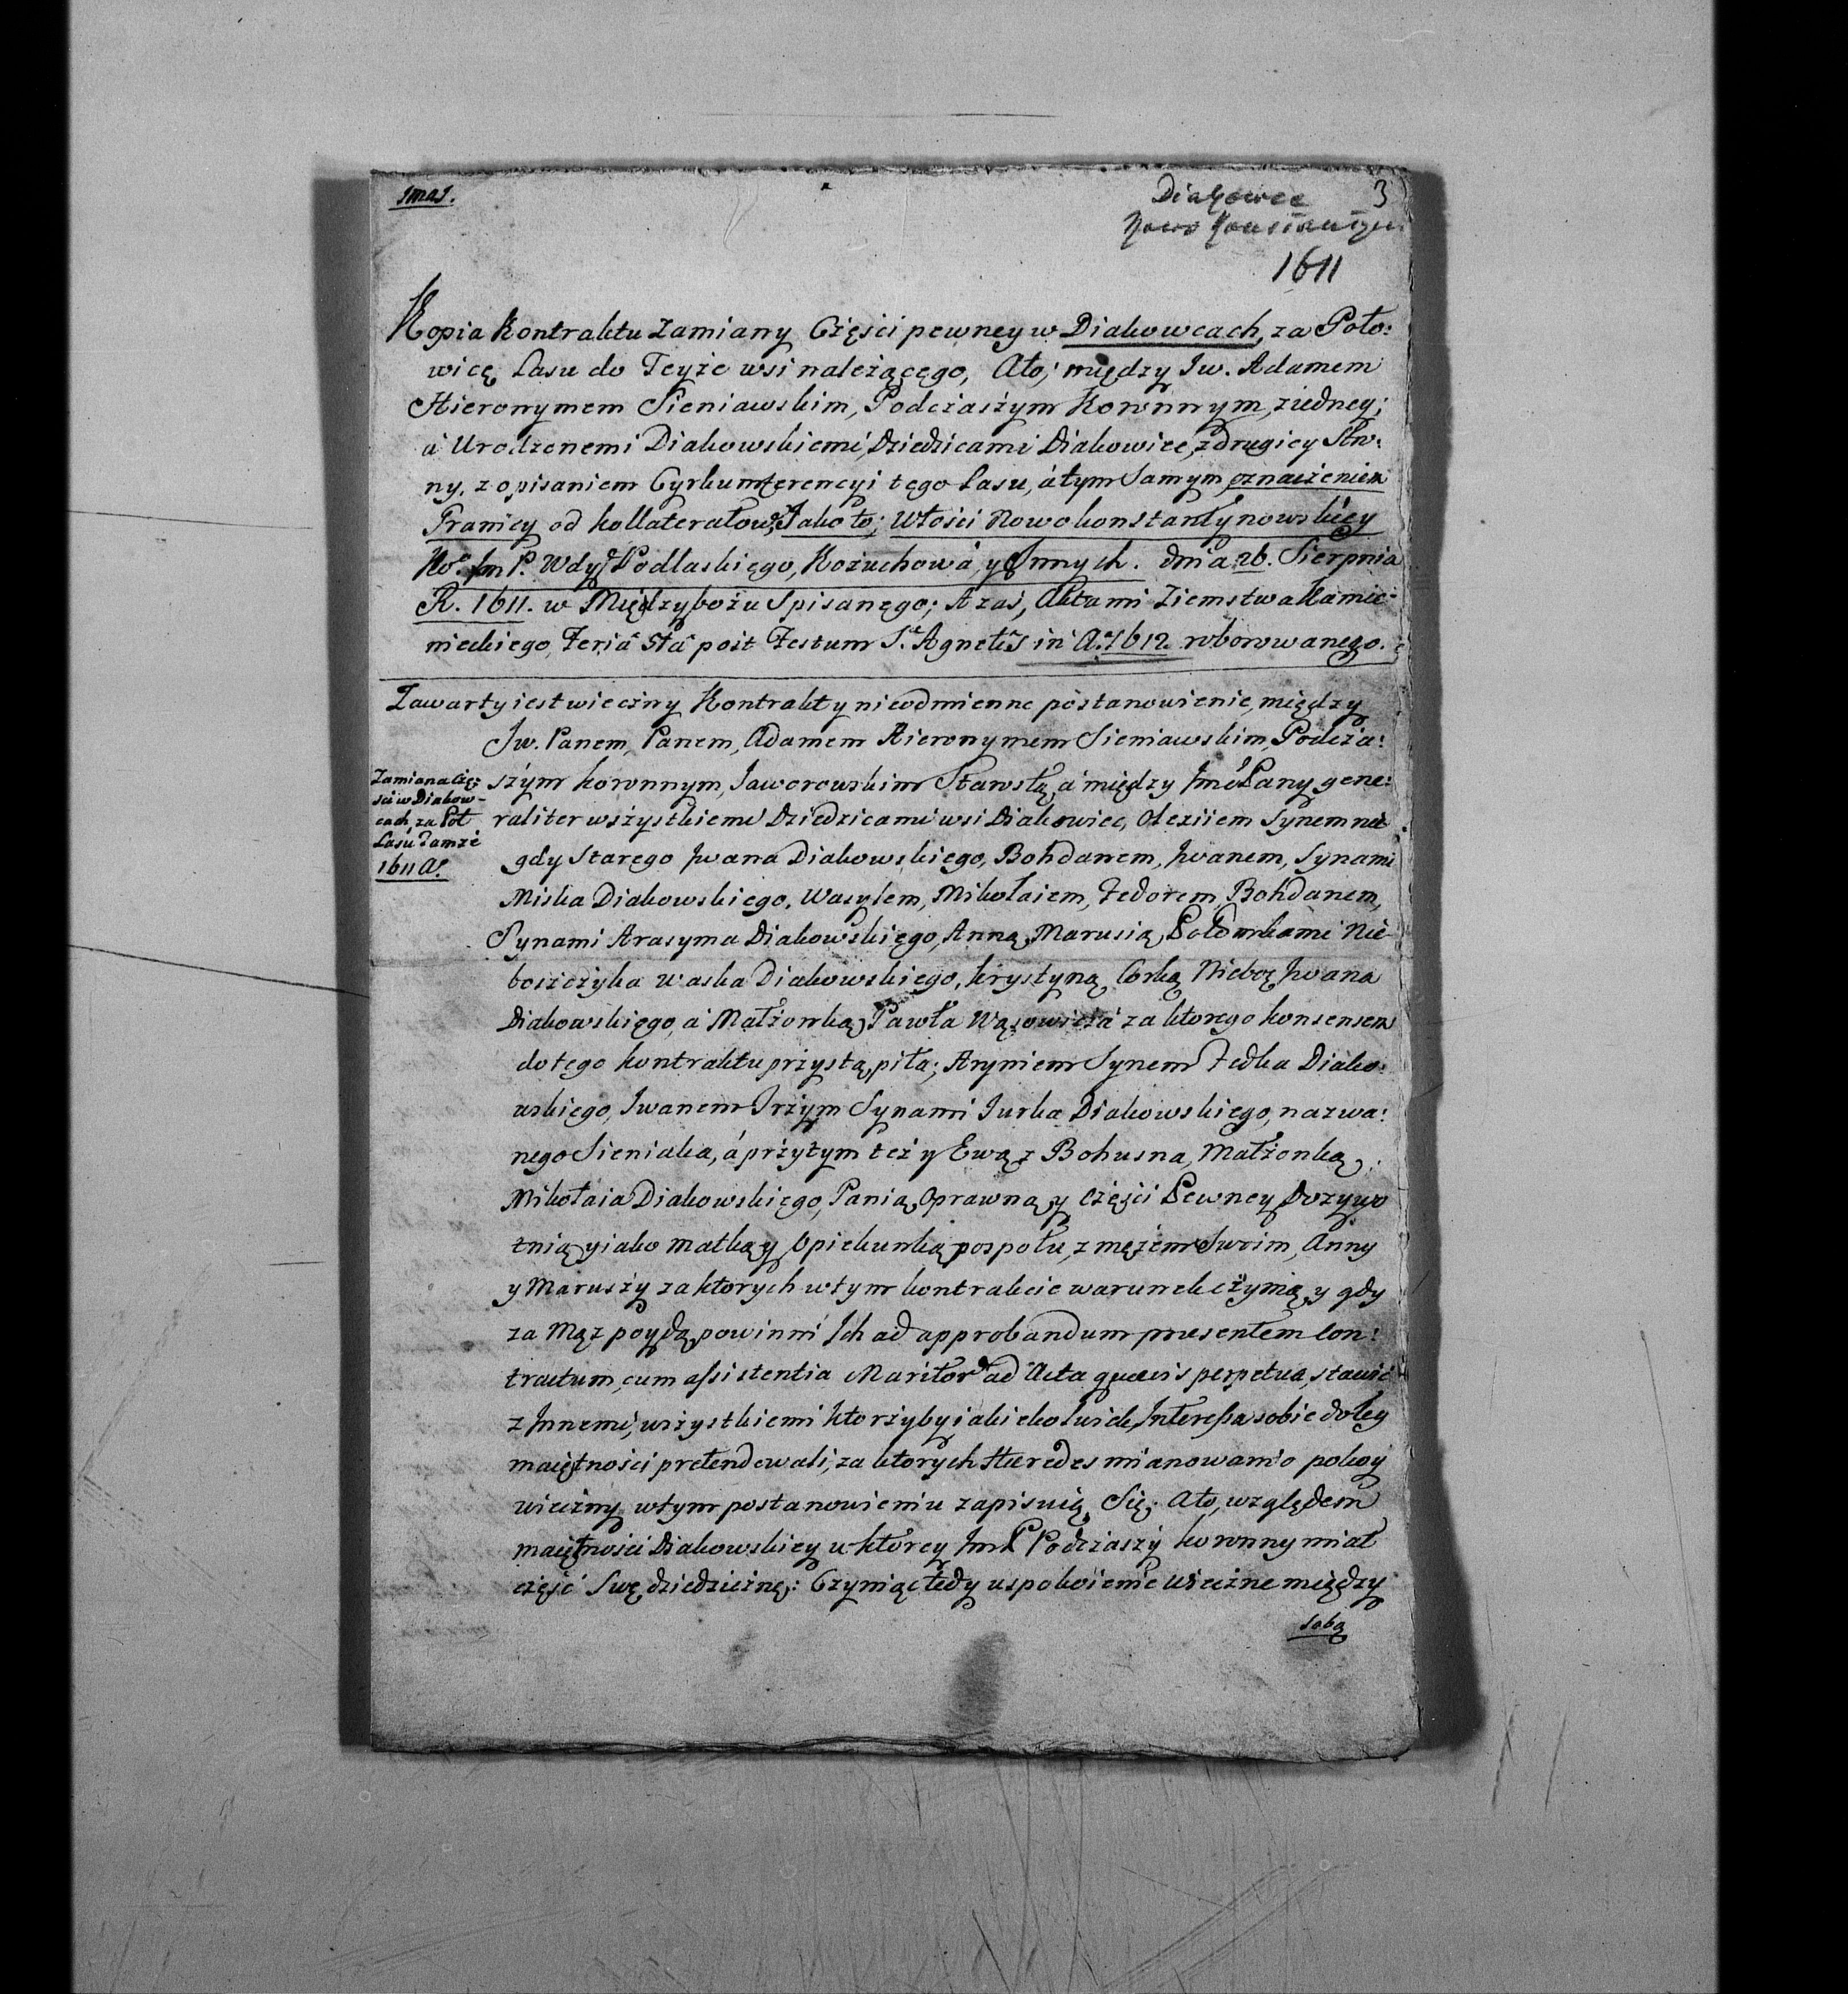 1mas.
Diakowce 3
Nowo Konstantyn
1611
Kopia Kontraktu Zamiany Części pewney w Diakowcach, za Poło:
wicę Lasu do Teyże wsi należącego, Ato; między Jw. Adamem
Hieronymem Sieniawskim, Podczaszym Koronnym, ziedney;
á Urodzonemi Diakowskiemi, Dziedzicami Diakowiec, zdrugiey Stro:
ny, z opisaniem Cyrkumferencyi tego Lasu, á tym samym oznaczeniem
Granicy od kollaterałow, Jako to; Włości Nowokonstantynowskiey
Wdy Podlaskiego, Kożuchowa, y Jnnych. dnia 26. Sierpnia
R. 1611. w Międzybożu Spisanego; A zaś, Aktami Ziemstwa Kamie-
nieckiego, Feriâ 5tâ post Festum S. Agnetis in A. 1612 roborowanego.
Zawarty iest wieczny Kontrakt y nieodmienne postanowienie, między
Jw. Panem, Panem, Adamem Hieronymem Sieniawskim, Podcza:
szym koronnym, Jaworowskim Starostą, a między Jmć Pany gene:
raliter wszystkiemi Dziedzicami wsi Diakowiec, Olexiiem Synem nie
gdy Starego Jwana Diakowskiego, Bohdanem, Jwanem, Synami
Miska Diakowskiego, Wasylem, Mikołaiem, Fedorem, Bohdanem,
Synami Arasyma Diakowskiego, Anną, Marusią, Potomkami Nie-
boszczyka Waska Diakowskiego, Krystyną Corką Niebo: Jwana
Diakowskiego, a Małżonką Pawła Wąsowicza za ktorego konsensem
do tego kontraktu przystąpiła; Aryniem Synem Fedka Diako:
wskiego, Jwanem Jrzym Synami Jurka Diakowskiego, nazwa:
nego Sieniaka, á przytym też y Ewą z Bohusna, Małżonką
Mikołaia Diakowskiego, Panią Oprawną y części Pewney Dożywo
tnią y iako matką y Opiekunką pospołu, z mężem Swoim, Anny
y Maruszy za ktorych w tym kontrakcie warunek czynią, y gdy
za Mąz poydą, powinni Jch ad approbandum praesentem Con:
tractum, cum assistentia Maritor ad Acta quaevis perpetua, stawić
z Jnnemi, wszystkiemi ktorzyby iakiekolwiek Jnteressa sobie do tey
maiętności pretendowali, za ktorych Haeredes mianowani o pokoy
wieczny w tym postanowieniu zapisuią Się. Ato, względem
maiętności Diakowskiey w ktorey Jmć P. Podczaszy koronny miał
część Swę dziedziczną: Czyniąc tedy uspokoienie wieczne między
sobą
Zamiana Czę:
sci w Diakow-
cach, za Poł
Lasu Tamże
1611 A.